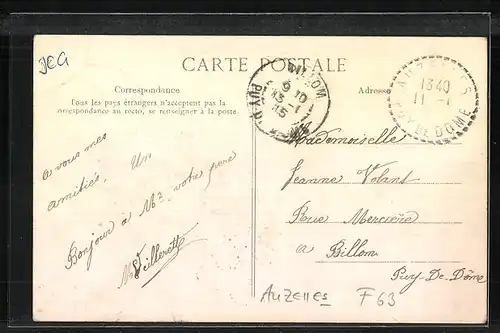 CARTE POSTALE
Correspondance
Tous les pays étrangers n'acceptent pas la
correspondance au recto, se renseigner à la poste.
Adresse
BILLOM
PUY-D
AUZELLES
13 40
11 -1
PUY DE DÔME
a vous mes
amitiés. Un
Bonjour à Mr votre pere
Mademoiselle
Jeanne Volant
Rue Mercière
a Billom
Puy-De-Dôme
Auzelles F63